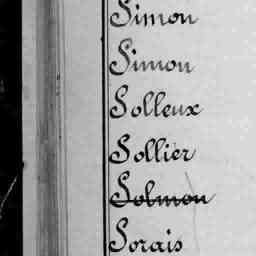 Simon
Simon
Solleux
Sollier
Solmon
Sorais